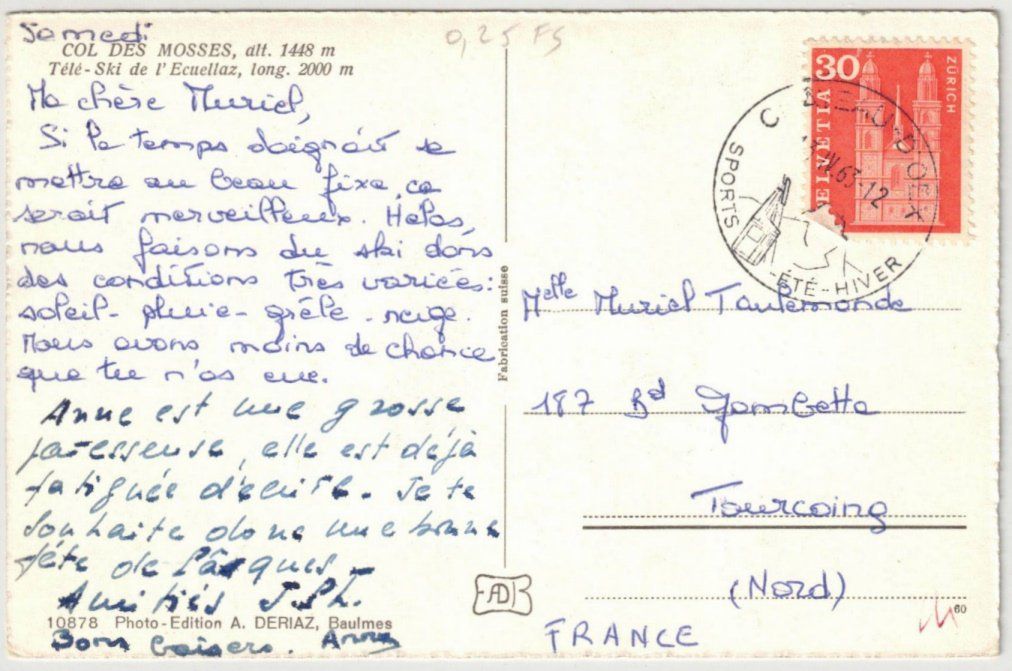 Samedi
COL DES MOSSES, alt. 1448 m
Télé-Ski de l'Ecuellaz, long. 2000 m
Ma chère Muriel,
Si le temps daignait se
mettre au beau fixe, ce
serait merveilleux. Hélas,
nous faisons du ski dans
des conditions très variées:
soleil - pluie - grêle - neige.
Nous avons moins de chance
que tu n'as eue.
Anne est une grosse
paresseuse, elle est déjà
fatiguée d'écrire. Je te
souhaite donc une bonne
fête de Pâques -
Amitiés J.Ph.
10878 Photo-Edition A. DERIAZ, Baulmes
Bons baisers. Anne
Fabrication suisse
0,25 FS
30
HELVETIA
ZÜRICH
CHÂTEAU-D'OEX
IV.63-12
SPORTS
-ÉTÉ-HIVER
Melle Muriel Toulemonde
187 Bd Gambetta
Tourcoing
(Nord)
FRANCE
60